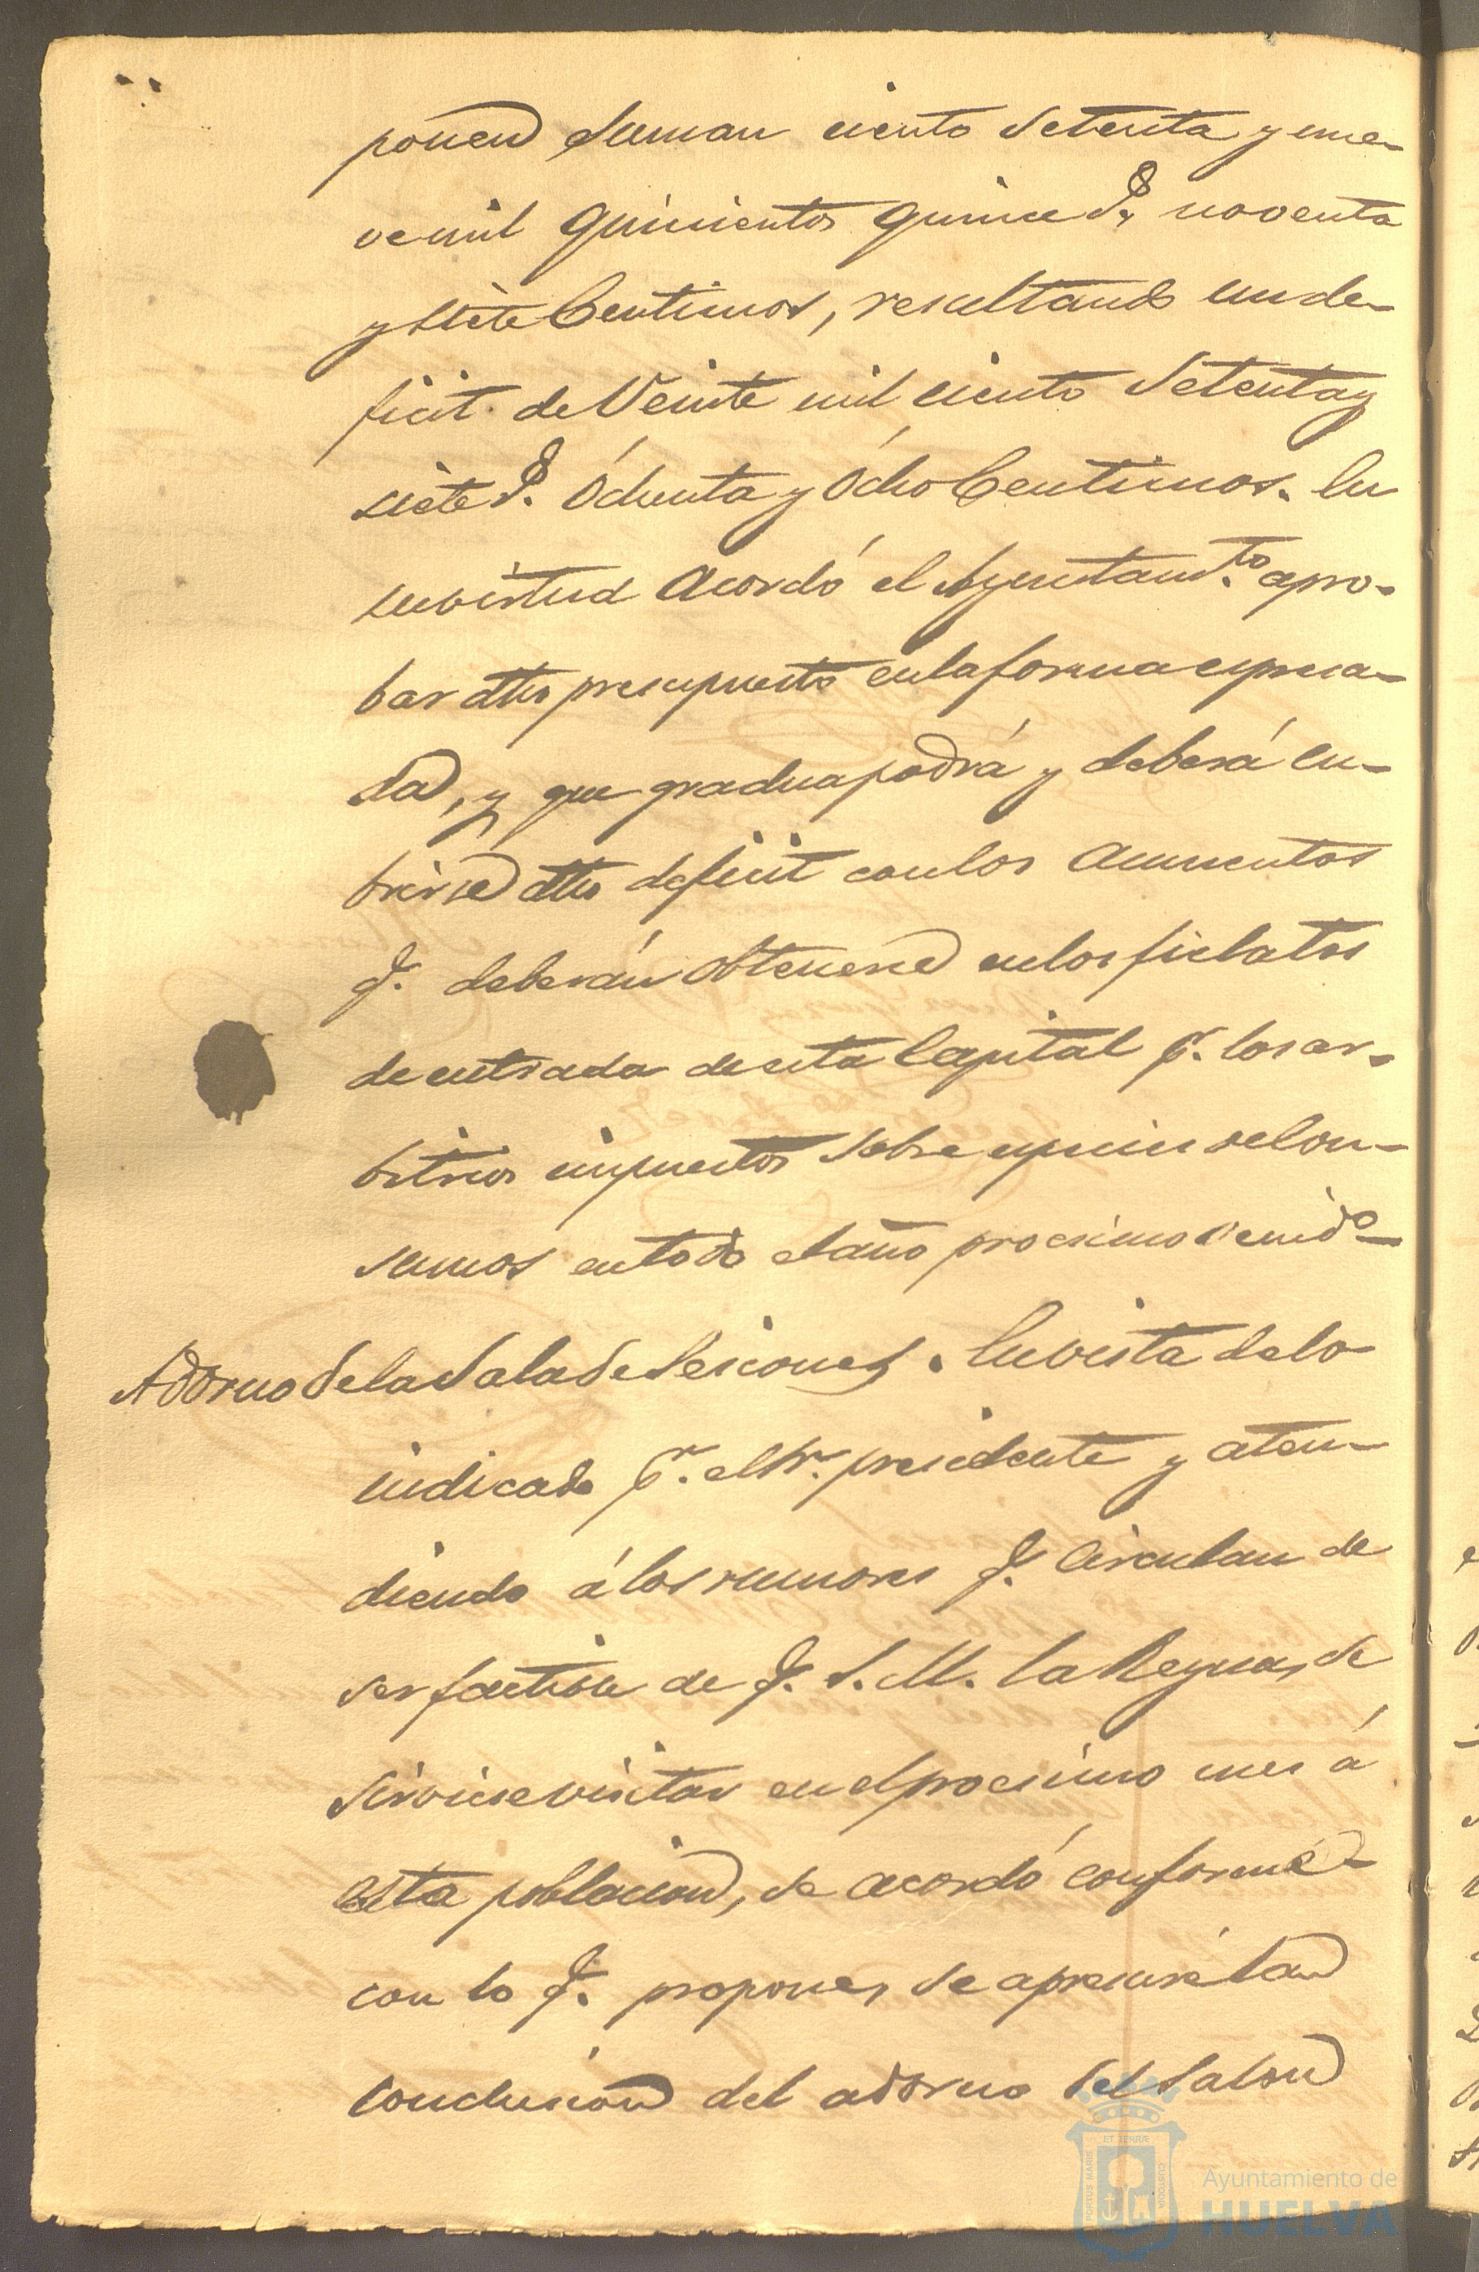 ponen suman ciento setenta y nue-
ve mil quinientos quince Ps. noventa
y siete Centimos, resultando un de-
ficit de Veinte mil ciento setenta y
siete Ps. Óchenta y Ócho Centimos. En
su virtud acordó el Ayuntam.to apro-
bar dho presupuesto en la forma espresa-
da, y que gradua podrá y deberá cu-
brirse dho deficit con los aumentos
q. deberán obtenerse en los fielatos
de entrada de esta Capital p.r los ar-
bitrios impuestos sobre especies de con-
sumos en todo el año procsimo venido
Adorno de la Sala de Sesiones. En vista de lo
indicado p.r el Sr. presidente y aten-
diendo á los rumores q. circulan de
ser factible de q. S. M. la Reyna, se
sirviese visitar en el procsimo mes á
esta poblacion, se acordó conforme
con lo q. propone, se apresure la
conclusion del adorno del Salon
Ayuntamiento de
HUELVA